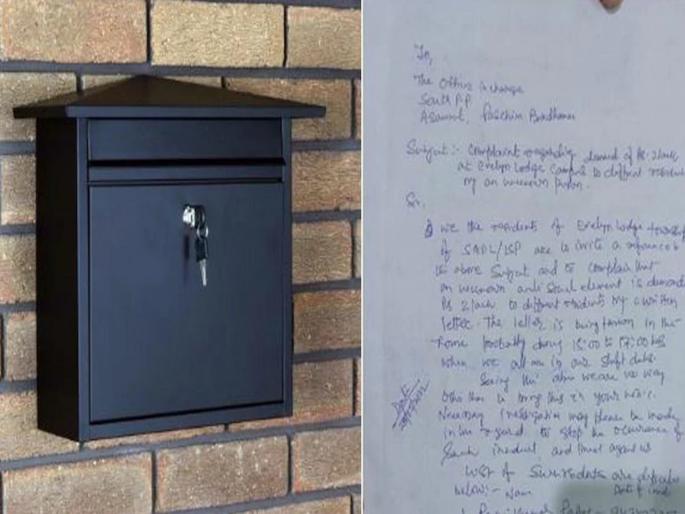 To,
The Officer Incharge
South P.P
Asansol, Paschim Bardhaman
Subject:- Complaint regarding demand of Rs. 2 lack
at Evelyn Lodge Campus to different residents
by an unknown person.
Sir,
We the residents of Evelyn Lodge township
of SAIL/ISP are to invite a reference to
the above Subject and to complain that
an unknown anti Social element is demanding
Rs 2 lack to different residents by a written
letter. The letter is being thrown in the
home probably during 15:00 to 17:00 hrs
when we all are in our shift duties.
Seeing the above we are no way
other than to bring this in your notice.
Necessary investigation may please be made
in this regard to stop the occurance of
Such incident and threat against us
List of are
below:- Name Date of